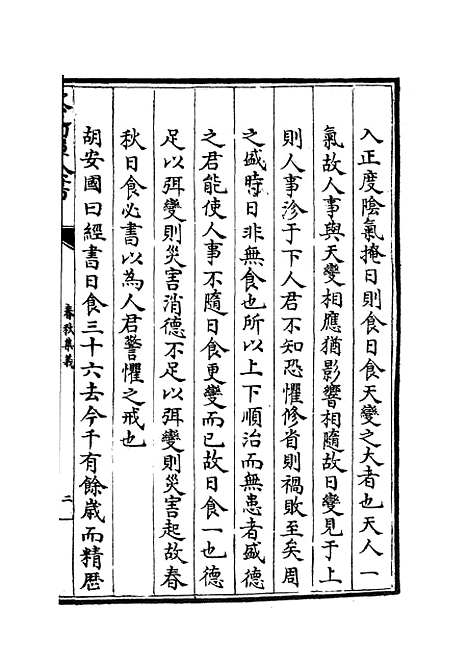 入正度陰氣掩日則食日食天變之大者也天人一
氣故人事與天變相應猶影響相隨故日變見于上
則人事沴于下人君不知恐懼修省則禍敗至矣周
之盛時日非無食也所以上下順治而無患者盛德
之君能使人事不隨日食更變而已故日食一也德
足以弭變則災害消德不足以弭變則災害起故春
秋日食必書以為人君警懼之戒也
胡安國曰經書日食三十六去今千有餘歲而精歷
春秋集義
二